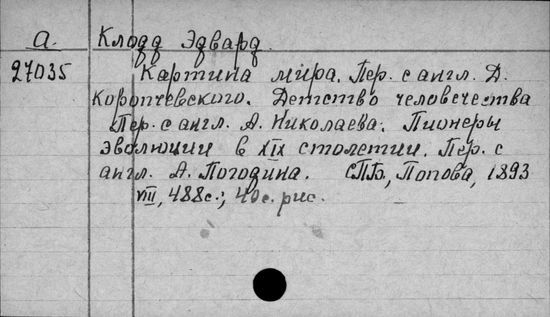 А. Клодд Эдвард.
27035 Картина мира. Пер. с англ. Д.
Коропчевского. Детство человечества
Пер. с англ. А. Николаева. Пионеры
эволюции в XIX столетии. Пер. с
англ. А. Погодина. СПБ., Попова, 1893
VIII, 488с.; 40с. рис.